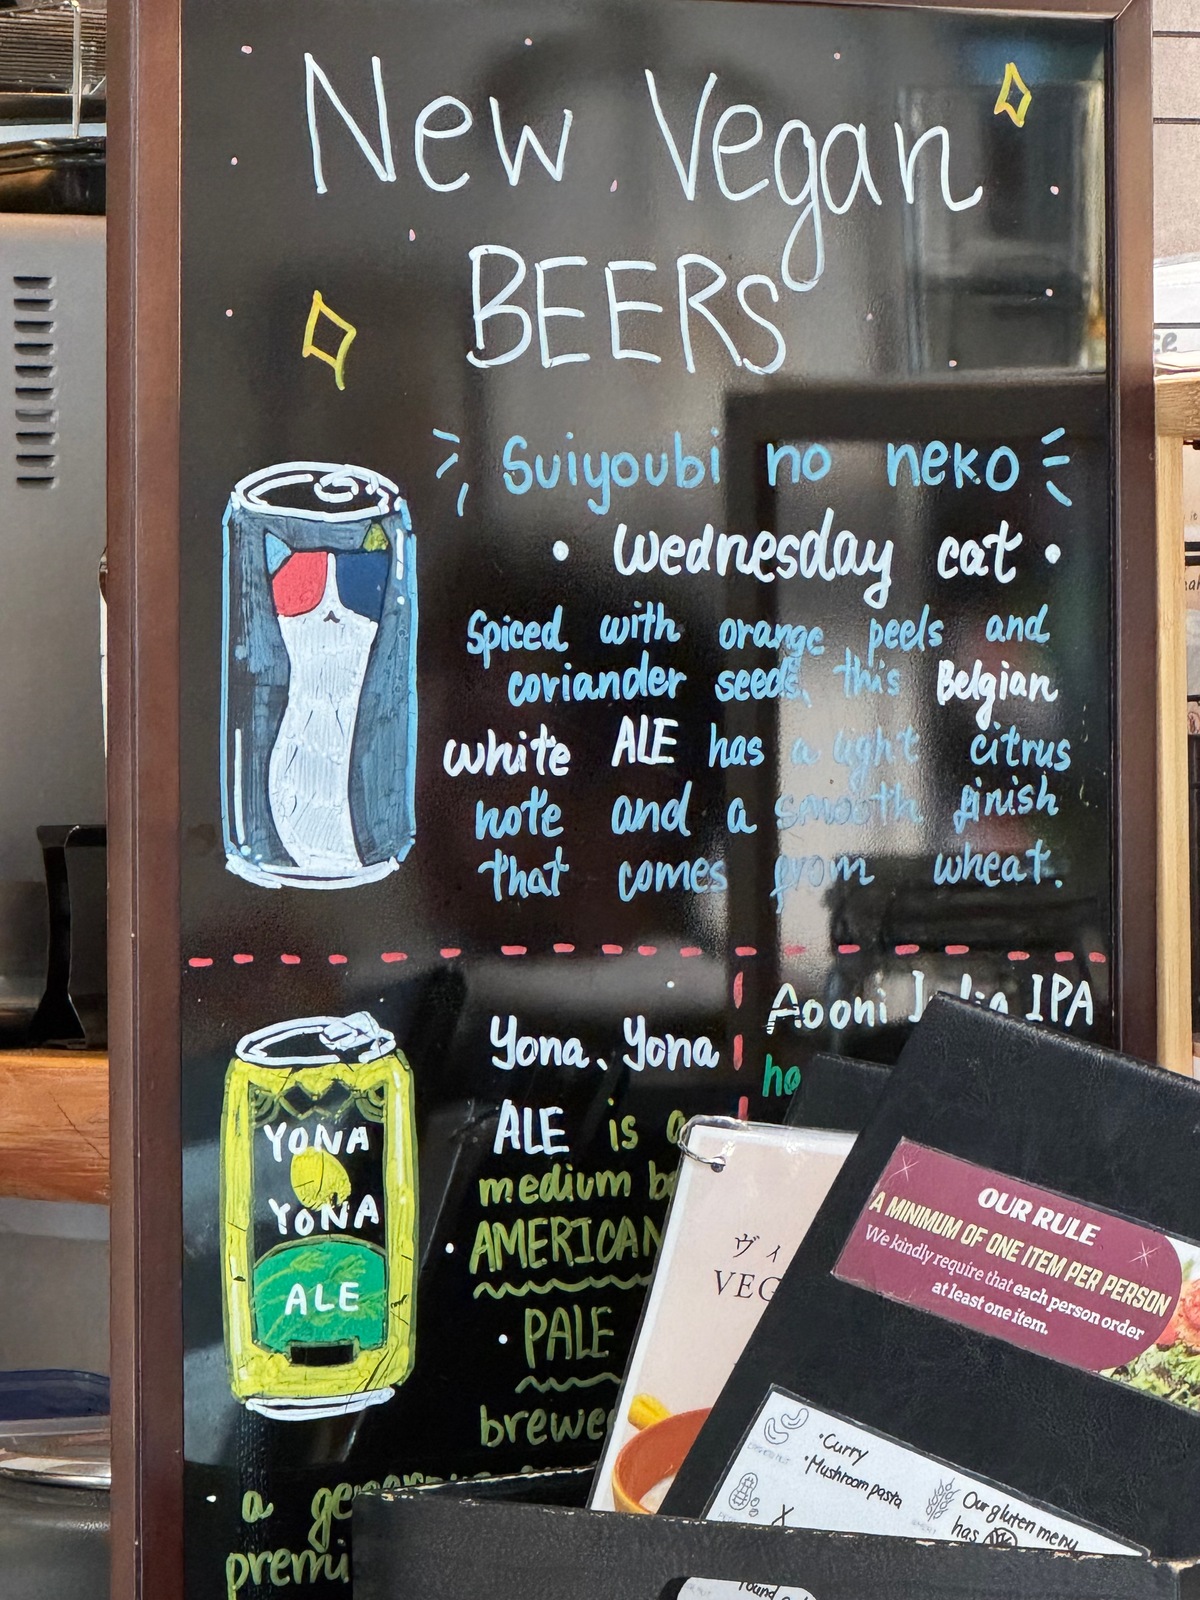 New Vegan
BEERS
Suiyoubi no neko
• Wednesday cat •
Spiced with orange peels and
coriander seeds, this Belgian
white ALE has a light citrus
note and a smooth finish
that comes from wheat.
YONA
YONA
ALE
Yona. Yona
ALE is a
medium
• AMERICAN
• PALE
a
Aooni IPA
ヴィ
VEG
OUR RULE
A MINIMUM OF ONE ITEM PER PERSON
We kindly require that each person order
at least one item.
•Curry
•Mushroom pasta
X
Our gluten menu
has